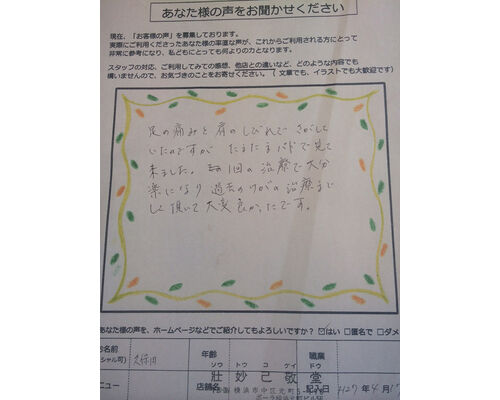 あなた様の声をお聞かせください
現在、「お客様の声」を募集しております。
実際にご利用くださったあなた様の率直な声が、これからご利用される方にとって
非常に参考になり、私どもにとっても何よりの力となります。
スタッフの対応、ご利用してみての感想、他店との違いなど、どのような内容でも
構いませんので、お気づきのことをお寄せください。（ 文章でも、イラストでも大歓迎です）
足の痛みと肩のしびれで さがして
いたのですが たまたまパドで見て
来ました。 1回の治療で大分
楽になり 過去のけがの治療まで
して頂いて大変良かったです。
あなた様の声を、ホームページなどでご紹介してもよろしいですか？ ☑はい □匿名で □ダメ
お名前
シャル可)
久保田
年齢
職業
ソウ トウ コ ケイ ドウ
壯 妙 己 敬 堂
ニュー
店舗名
横浜市中区元町
記入日
H27年4月